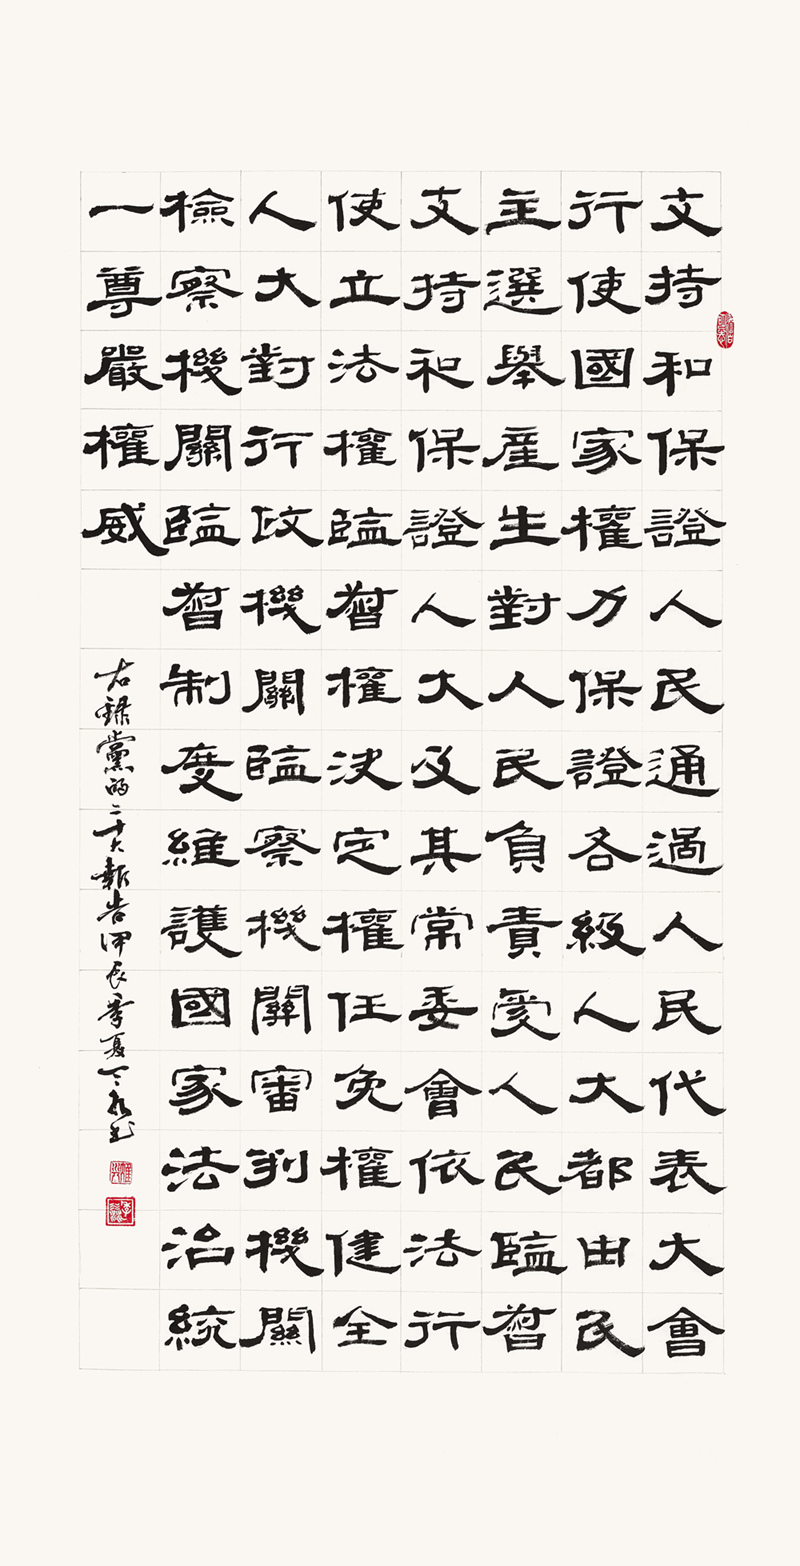 支持和保證人民通過人民代表大會
行使國家權力保證各級人大都由民
主選舉産生對人民負責受人民監督
支持和保證人大及其常委會依法行
使立法權監督權決定權任免權健全
人大對行政機關監察機關審判機關
檢察機關監督制度維護國家法治統
一尊嚴權威
右錄黨的二十大報告甲辰季夏